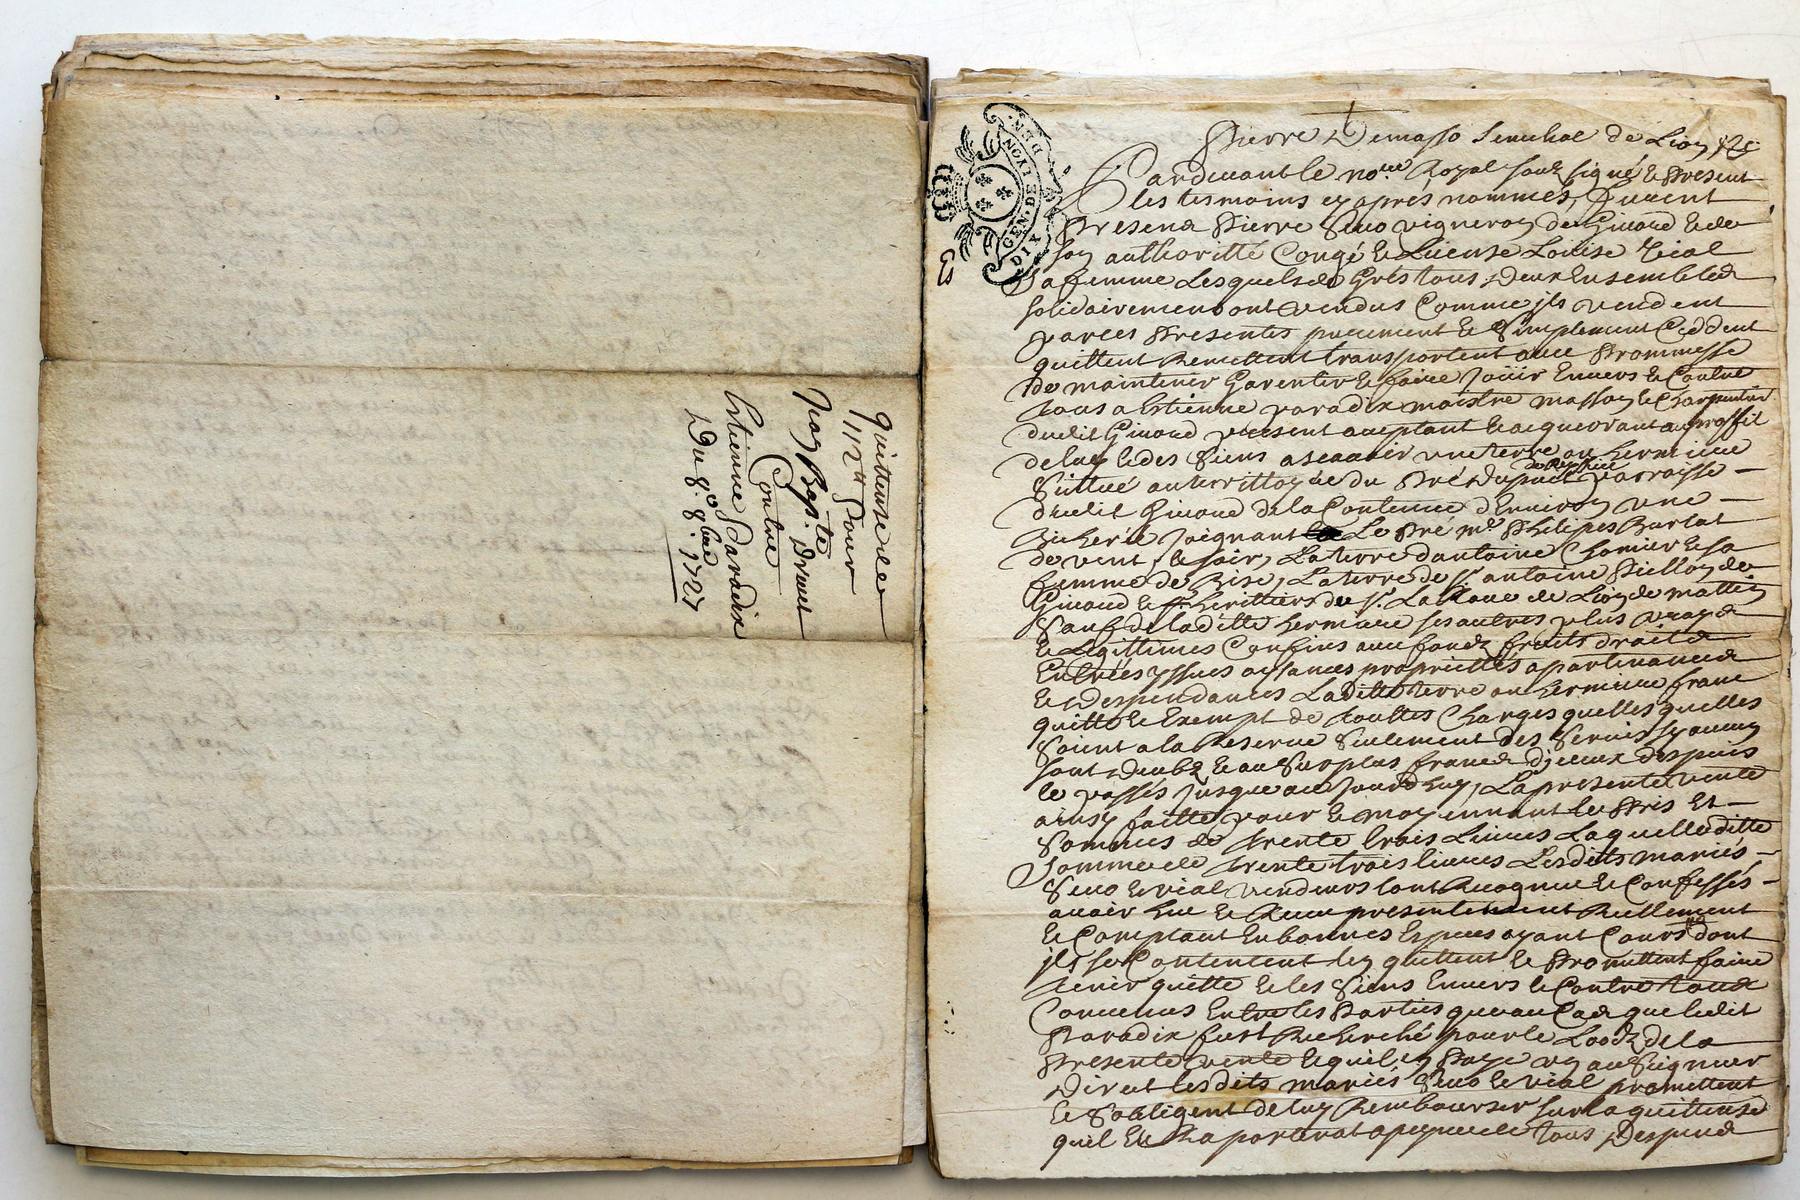 Quittence de
112lt Pour
Jean Bapte Drevet
Contre
Estienne Paradix
Du 8e 8bre 1727
GEN. DE LYON
DIX DEN.
Pierre Demasso Seneschal de Lion &c
Pardevant le nore Royal souz signé & Present
les tesmoins cy aprés nommés, furent
Presens Pierre vigneron de Ginaud & de
son authoritté Congé & Lisense Louise Vial
sa femme Lesquels de Grés tous Deux Ensembles
solidairement ont vendus Comme jls vendent
par ces Presentes purement & Simplement Ceddent
quittent Remettent transportent avec Prommesse
de maintenir Garentir & faire Joüir Envers & Contre
tous a Estienne paradix maistre masson & Charpentier
dudit Ginaud present acceptant & acquerant au proffit
de luy & des Siens ascavoir une terre ou hermiture
Sittué au territtoire du Pré parroisse
dudit Ginaud de la Contenue d'Environ une
Bicherée Joignant Le Pré me Philipes Burlat
de vent, & soir, La terre dantoine Chomier & sa
femme de Bise, La terre de Sr antoine de
Ginaud & herittiers de Sr de Lion de mattin
Sauf de laditte hermiture ses autres plus vrays
& Legittimes Confins avec fondz fruits droits
Entrées yssues aysances propriettés apartenances
& Despendances Laditte terre ou hermiture franc
quitte & Exempt de touttes Charges quelles quelles
Soient a la Reserve Seulement des Servis sy aucuns
sont Deubz & au Surplus francs djceux despuis
le passés Jusque au Jourdhuy, La presente vente
ainsy faitte pour & moyennant le Pris Et
Sommes de trente trois Livres Laquelle ditte
Somme de trente trois livres Lesdits mariés
& vial vendeurs sont Recognue & Confessés
avoir heu & Receu presentement Reellement
& Comptant En bonnes Especes ayant Cours dont
jls se Contentent len quittent & Promettent faire
tenir quitte & les Siens Envers & Contre tous
Convenus Entre les Parties que au Cas que ledit
Paradix fust Recherché pour le Laodz de la
Presente vente & quil en Paye un au Seigneur
Direct lesdits mariés & vial promettent
& Sobligent de luy Rembourser sur la quittense
quil En Raporterat a peyne de tous Despens